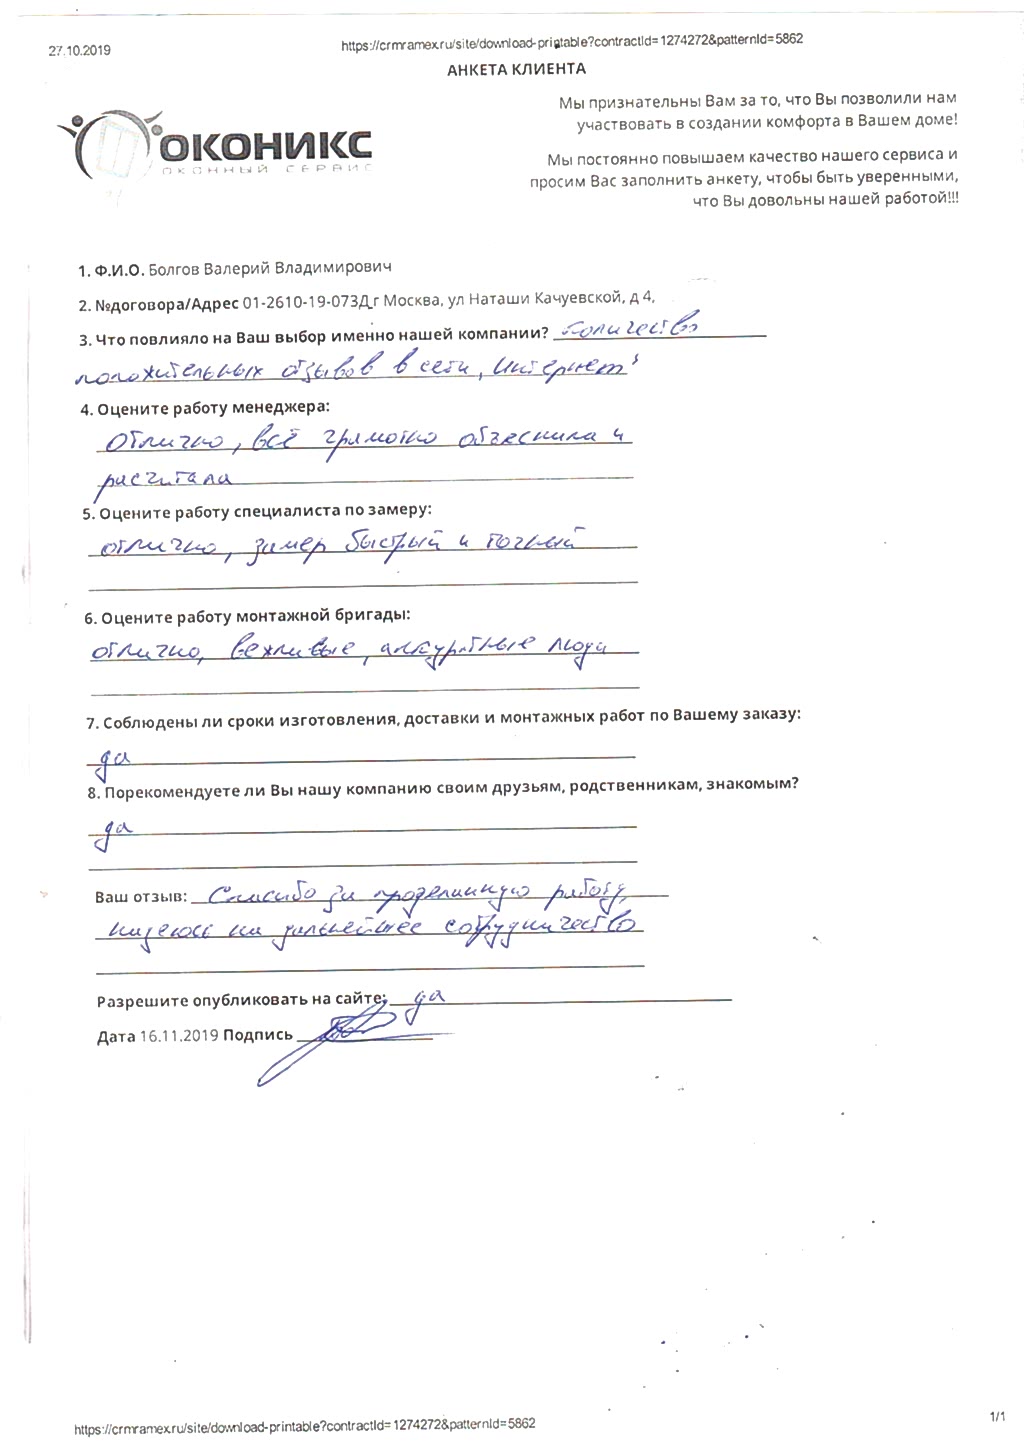 27.10.2019
https://crmramex.ru/site/download-printable?contractId=1274272&patternId=5862
АНКЕТА КЛИЕНТА
Мы признательны Вам за то, что Вы позволили нам
участвовать в создании комфорта в Вашем доме!
ОКОНИКС
ОКОННЫЙ СЕРВИС
Мы постоянно повышаем качество нашего сервиса и
просим Вас заполнить анкету, чтобы быть уверенными,
что Вы довольны нашей работой!!!
1. Ф.И.О. Болгов Валерий Владимирович
2. №договора/Адрес 01-2610-19-073Д,г Москва, ул Наташи Качуевской, д 4,
3. Что повлияло на Ваш выбор именно нашей компании? Количество
положительных отзывов в сети, Интернет'
4. Оцените работу менеджера:
Отлично, всё грамотно объеснила и
расчитала
5. Оцените работу специалиста по замеру:
отлично, замер быстрый и точный
6. Оцените работу монтажной бригады:
отлично, вежливые, аккуратные люди
7. Соблюдены ли сроки изготовления, доставки и монтажных работ по Вашему заказу:
да
8. Порекомендуете ли Вы нашу компанию своим друзьям, родственникам, знакомым?
да
Ваш отзыв: Спасибо за проделанную работу,
надеюсь на дальнейшее сотрудничество
Разрешите опубликовать на сайте: да
Дата 16.11.2019 Подпись
https://crmramex.ru/site/download-printable?contractId=1274272&patternId=5862
1/1